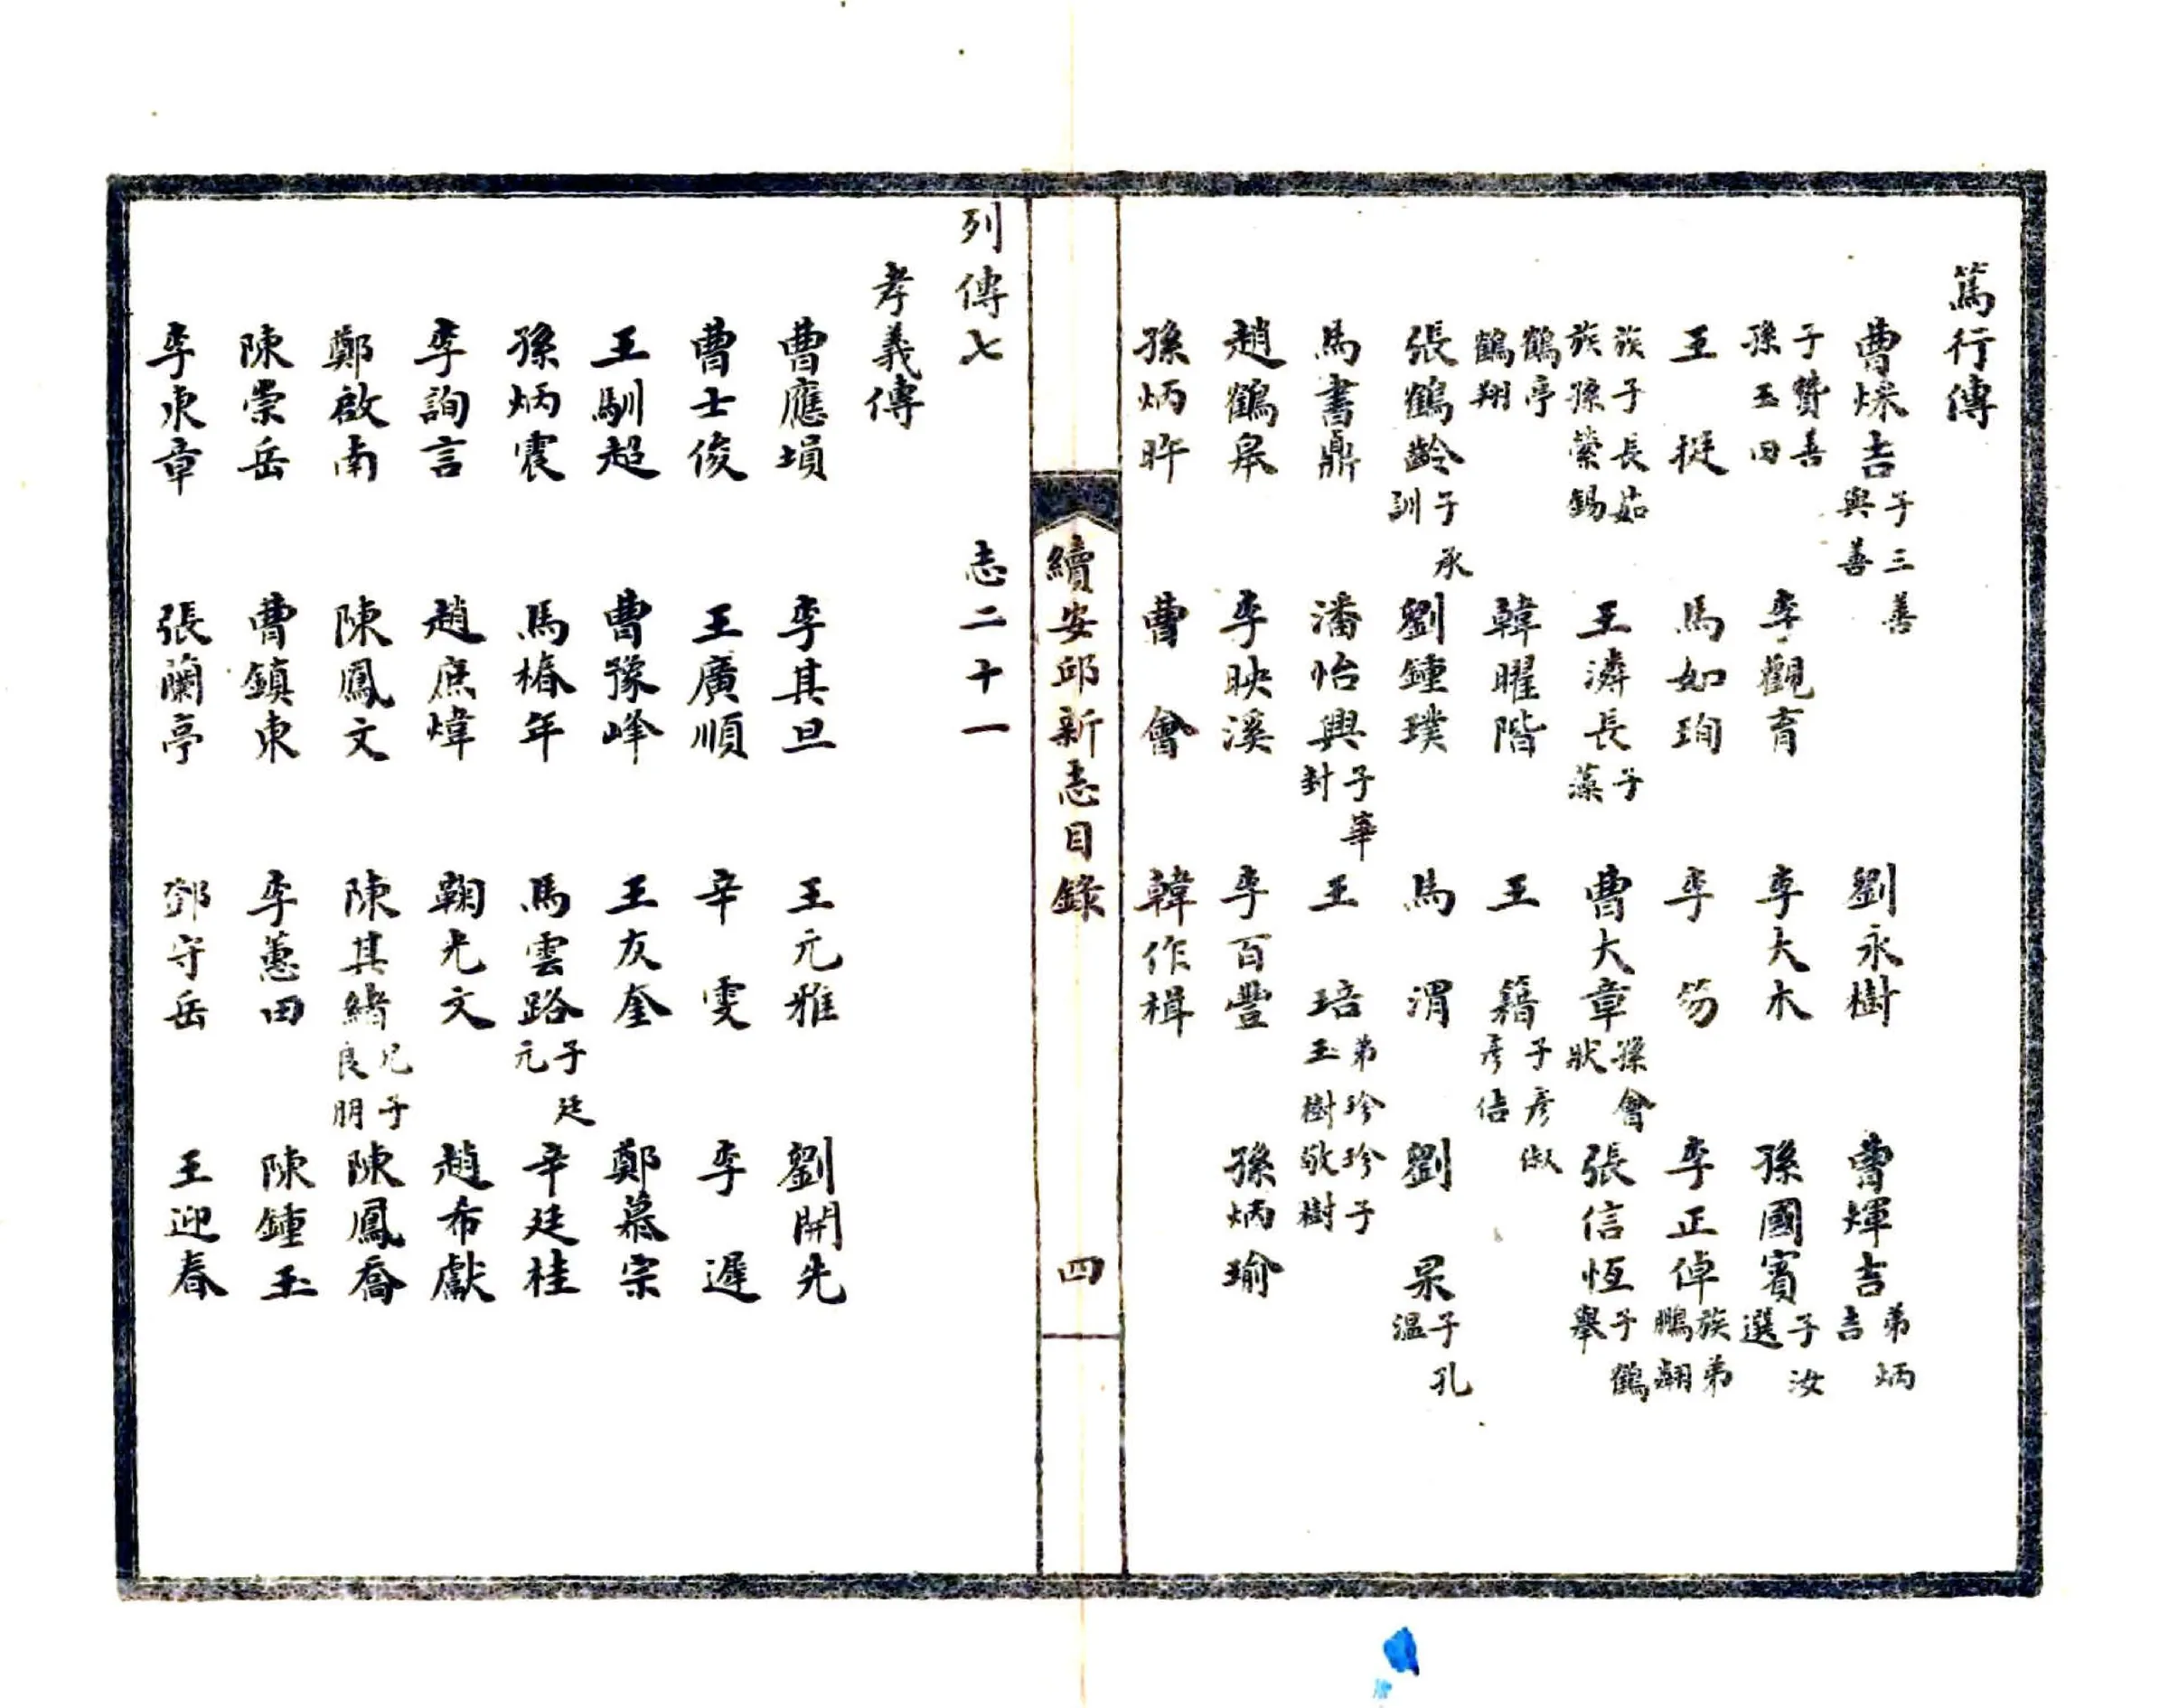 篤行傳
曹煐吉 子三善 與善 劉永樹 曹煇吉 弟炳吉
子贊善 孫玉田 李觀育 李大木 孫國賓 子汝選
王挺 馬如珣 李笏 李正倬 族弟鵬翮
族子長茹 族孫縈錫 王濤長 子藻 曹大章 孫會狀 張信恆 子鶴舉
鶴亭 鶴翔 韓曜階 王籍 子彥俶 彥佶
張鶴齡 子承訓 劉鍾璞 馬渭 劉杲 子孔溫
馬書鼎 潘怡興 子華封 王琣 弟珍珍子 玉樹敬樹
趙鶴皋 李映溪 李百豐 孫炳瑜
孫炳昨 曹會 韓作楫
續安邱新志目錄 四
列傳七 志二十一
孝義傳
曹應塤 李其旦 王元雅 劉開先
曹士俊 王廣順 辛雯 李遲
王馴超 曹豫峰 王友奎 鄭慕宗
孫炳震 馬椿年 馬雲路 子廷元 辛廷桂
李詢言 趙庶煒 鞠光文 趙布獻
鄭啟南 陳鳳文 陳其緒 兄子良朋 陳鳳喬
陳崇岳 曹鎮東 李蕙田 陳鍾玉
李東章 張蘭亭 鄧守岳 王迎春